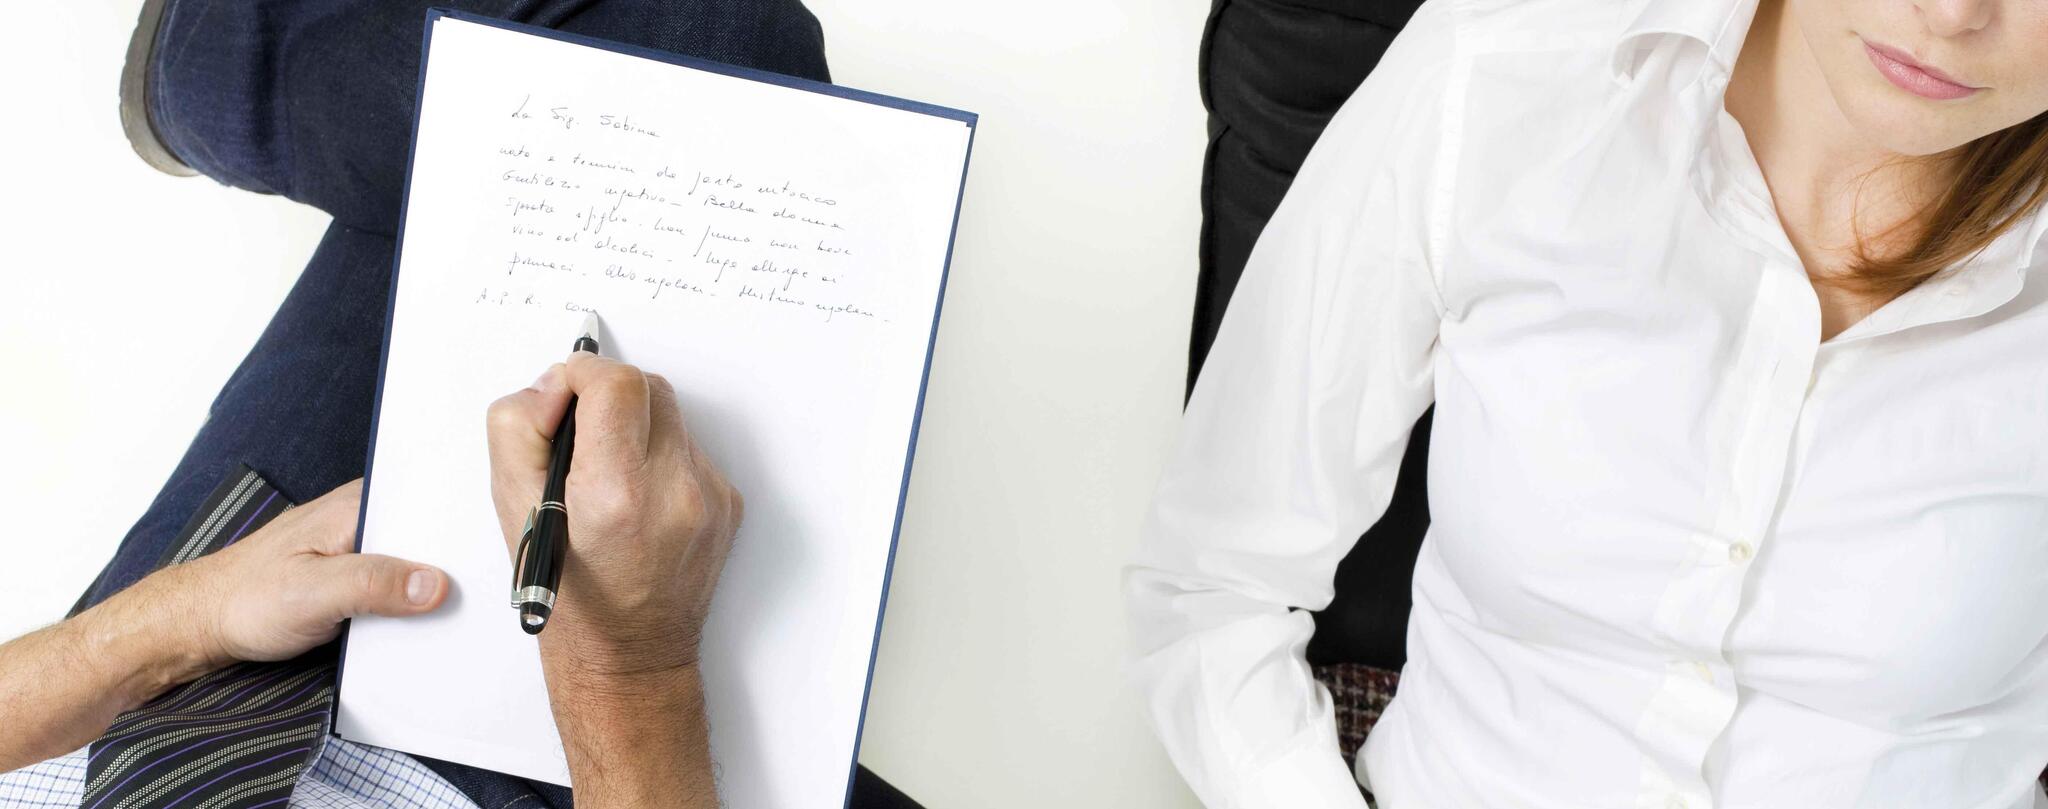 La Sig. Sabina
nata a termine da parto eutocico
Gentilizio negativo - Bella donna
Sposata figlia. Non fuma non beve
vino od alcolici. Nega allergie ai
farmaci. Alvo regolare. Mestruo regolare.
A.P.R. con